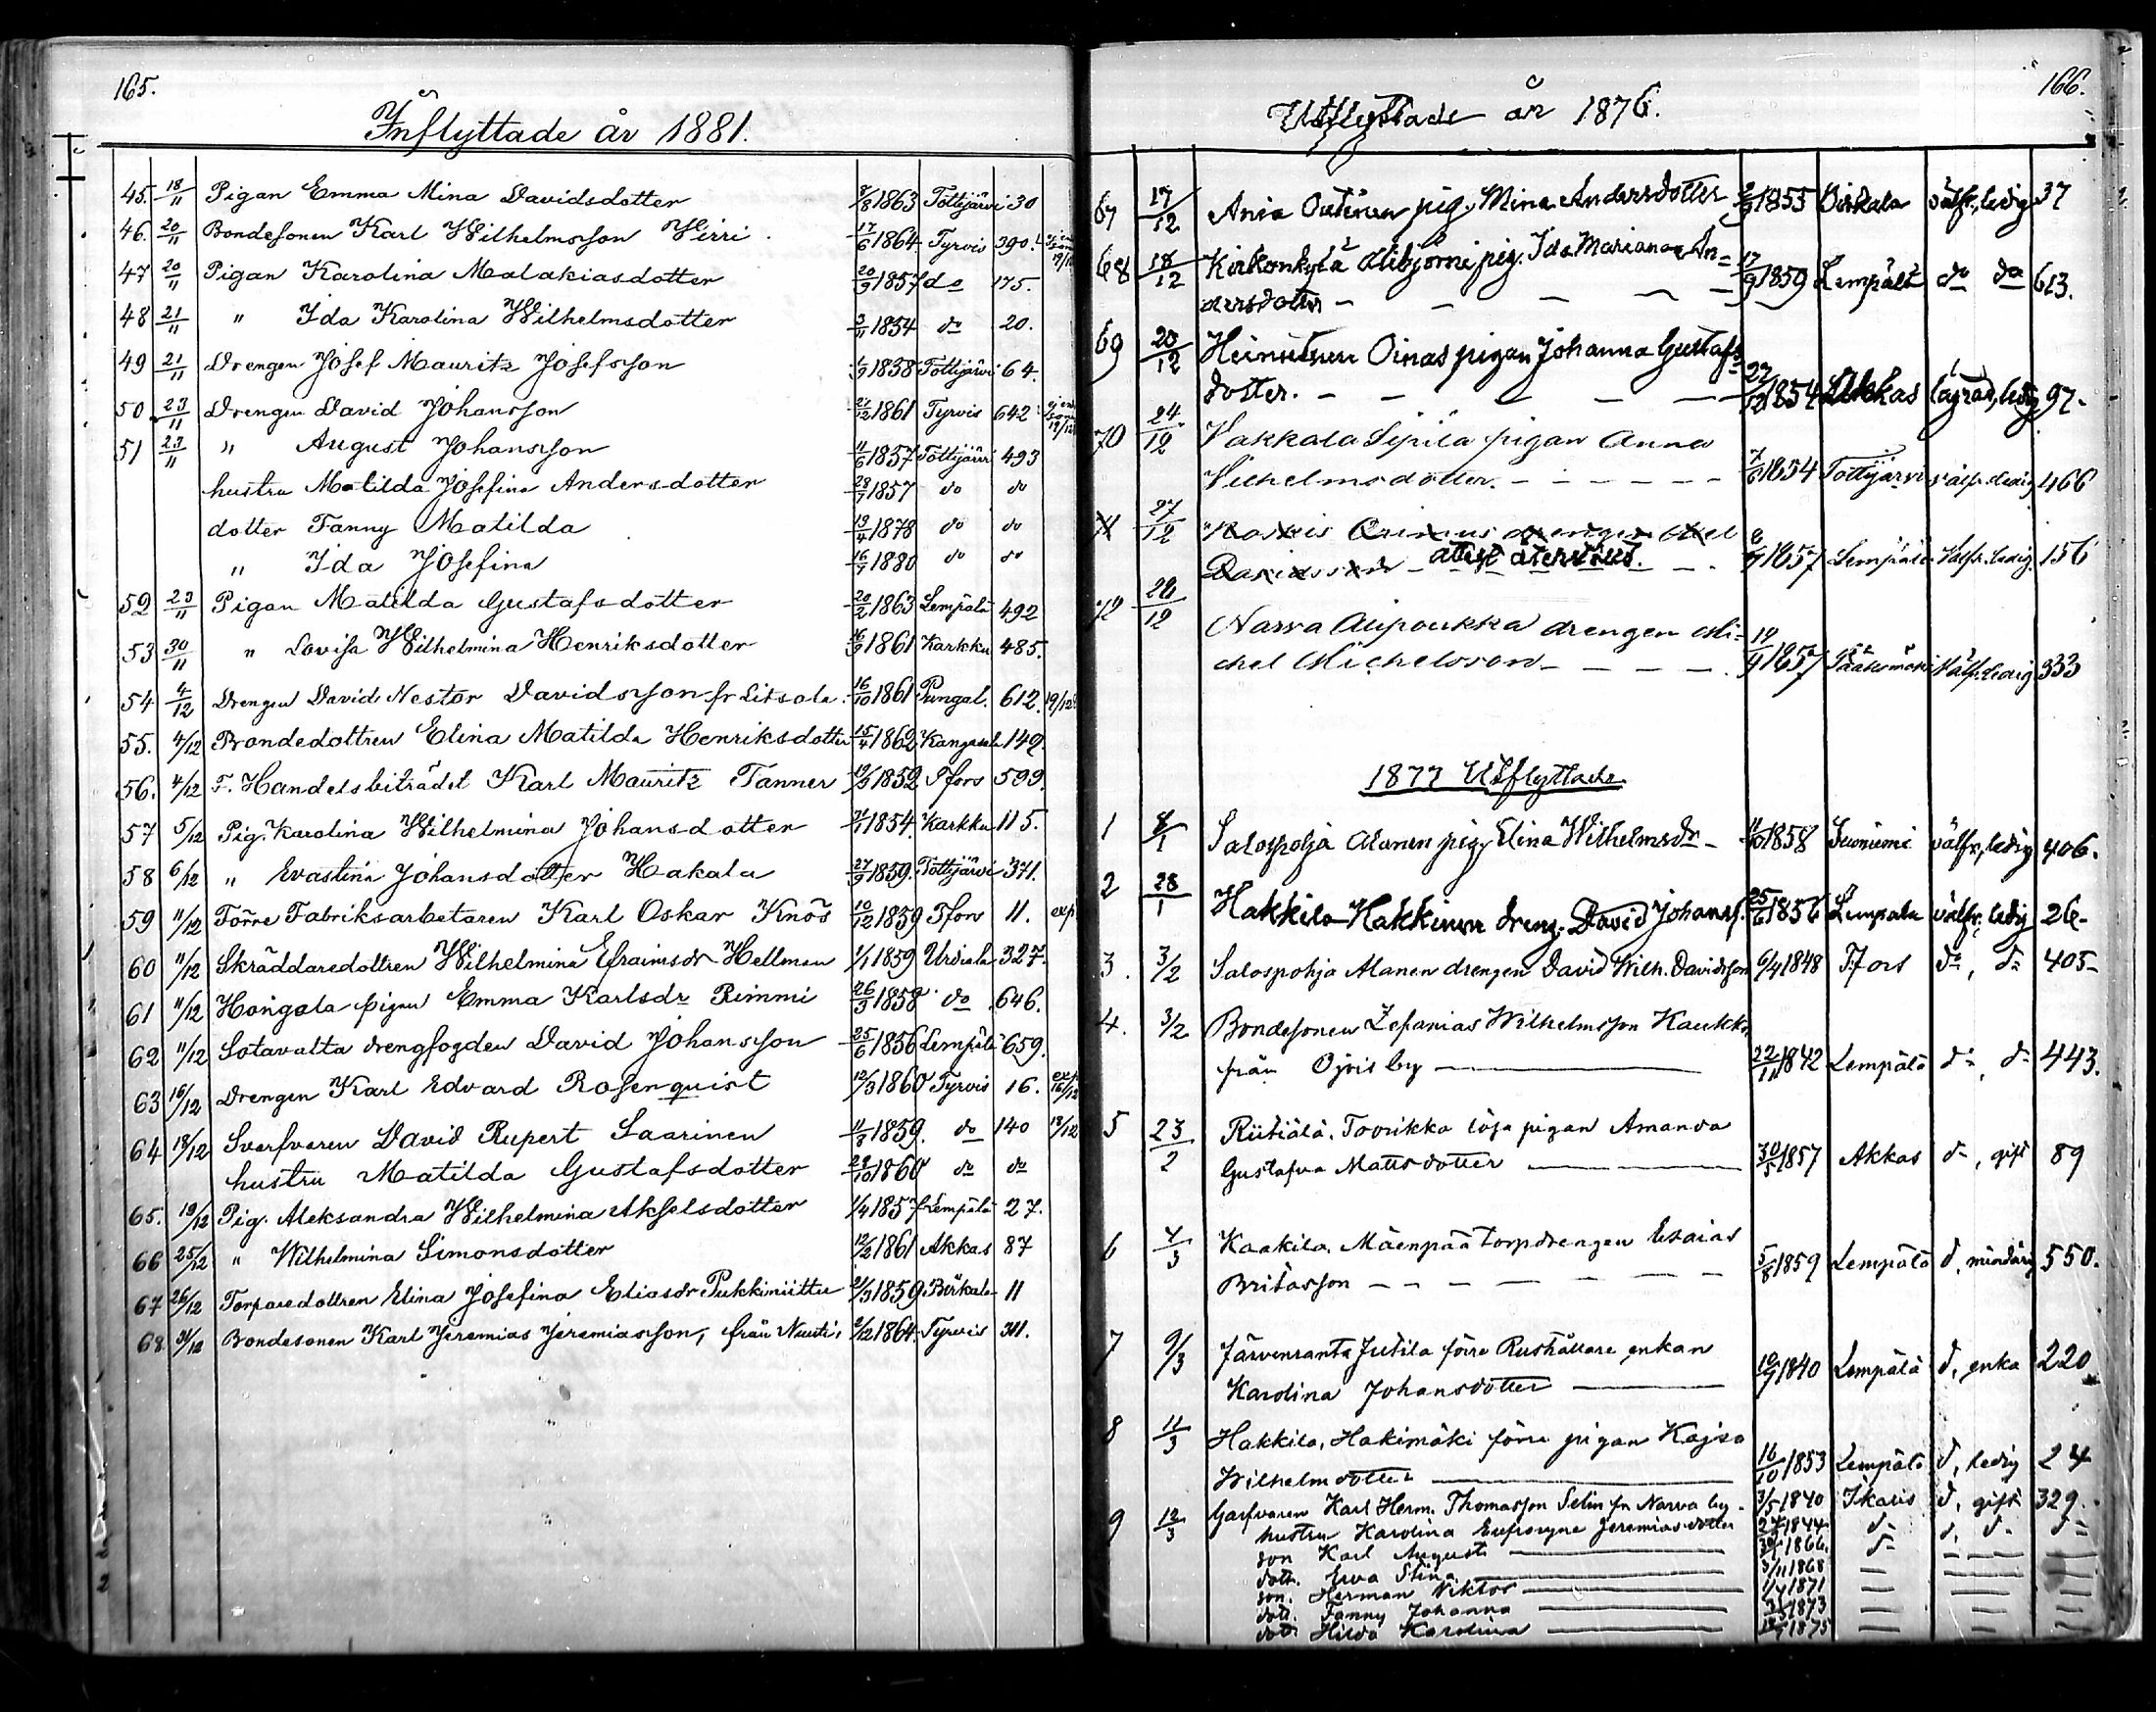 165.
Inflyttade år 1881.
45. 18/11 Pigan Emma Mina Davidsdotter 7/8 1863 Tottijärvi 30
46. 20/11 Bondesonen Karl Wilhelmsson Wirri 17/6 1864 Tyrvis 390.
47 20/11 Pigan Karolina Malakiasdotter 20/9 1857 do 175.
48 21/11 " Ida Karolina Wilhelmsdotter 3/11 1854 do 20.
49 21/11 Drengen Josef Mauritz Josefsson 1838 Tottijärvi 64.
50 23/11 Drengen David Johansson 21/12 1861 Tyrvis 642
51 23/11 " August Johansson 11/6 1857 Tottijärvi 493
hustru Matilda Josefina Andersdotter 28/7 1857 do do
dotter Fanny Matilda 13/4 1878 do do
" Ida Josefina 16/7 1880 do do
52 23/11 Pigan Matilda Gustafsdotter 20/2 1863 Lempälä 492
53 30/11 " Lovisa Wilhelmina Henriksdotter 16/9 1861 Karkku 485.
54 4/12 Drengen David Nestor Davidsson fr Litsola 16/10 1861 Pungal. 612. 19/12
55. 4/12 Bondedottren Elina Matilda Henriksdotter 15/4 1862 Kangasala 149.
56. 4/12 F. Handelsbiträdet Karl Mauritz Tanner 1852 Tfors 599.
57 5/12 Pig. Karolina Wilhelmina Johansdotter 1854. Karkku 115.
58 6/12 " Evastina Johansdotter Hakala 27/9 1859. Tottijärvi 371.
59 11/12 Förre Fabriksarbetaren Karl Oskar Knös 10/12 1859 Tfors 11. exp
60 11/12 Skräddaredottren Wilhelmina Efraimsdr Hellman 1/1 1859 Urdiala 327.
61 11/12 Hoingola pigan Emma Karlsdr Rimmi 26/3 1858 do 646.
62 11/12 Sotavalta drengfogden David Johansson 25/6 1856 Lempälä 659.
63 16/12 Drengen Karl Edvard Rosenquist 12/3 1860 Tyrvis 16. exp 16/12
64 18/12 Svarfvaren David Rupert Saarinen 11/3 1859. do 140 18/12
hustru Matilda Gustafsdotter 29/10 1860 do do
65. 19/12 Pig. Aleksandra Wilhelmina Akselsdotter 1/4 1857 Lempälä 27.
66 25/12 " Wilhelmina Simonsdotter 12/2 1861 Akkas 87
67 26/12 Torparedottren Elina Josefina Eliasdr Pukkiniittu 21/3 1859 Birkala 11
68 31/12 Bondesonen Karl Jeremias Jeremiasson, från Nuuti, 2/12 1864. Tyrvis 311.
166.
Utflyttade år 1876.
67 17/12 Ania Outinen pig. Mina Andersdotter 2/9 1855 Birkala välfr, ledig 37
68 18/12 Kirkonkylä Alibjörni pig. Ida Mariana An=
dersdotter 17/9 1859 Lempälä do do 613.
69 20/12 Heinutnen Oinas pigan Johanna Gustafs=
dotter. 22/12 1854 Akkas ledig 97.
70 24/12 Vakkala Sipilä pigan Anna
Wilhelmsdotter. 7/6 1854 Tottijärvi välfr. ledig 466
71 27/12 drengen Axel
Davidsson attest återvänd. 1857 Lempälä välfr. ledig. 156
72 28/12 Narva Alipoukka drengen Mi=
chel Michelsson 19/9 1857 Sääksmäki Välfr. ledig 333
1877 Utflyttade
1 8/1 Salospohja Alanen pig. Elina Wilhelmsdr 1858 Suoniemi välfr, ledig 406.
2 28/1 Hakkila Hakkinen dreng. David Johanss. 25/6 1856 Lempälä välfr, ledig 26
3. 3/2 Salospohja Alanen drengen David Wilh. Davidsson 6/4 1848 Tfors do, do 405
4. 3/2 Bondesonen Zefanias Wilhelmsson Kaukko
från Ojois by 22/11 1842 Lempälä do, do 443.
5 23/2 Riitiälä, Toorikka lösa pigan Amanda
Gustafva Mattsdotter 30/5 1857 Akkas do, gift 89
6 7/3 Kaakila, Mäenpää torpdrengen Esaias
Britasson 5/8 1859 Lempälä d, mindårig 550.
7 9/3 Järvenranta Jutila förre Rusthållare enkan
Karolina Johansdotter 19/7 1840 Lempälä d, enka 220
8 11/3 Hakkila, Hakimäki förre pigan Kajsa
Wilhelmsdotter 16/10 1853 Lempälä d, ledig 24
9 12/3 Garfvaren Karl Herm. Thomasson Selin fr Narva by 3/5 1840 Ikalis d, gift 329.
hustru Karolina Eufrosyne Jeremiasdotter 1844 do d, do do
son Karl August 1866 do
dott. Eva Stina 3/11 1868
son. Herman Viktor 1/7 1871
dott. Fanny Johanna 1873
dott. Hilda Karolina 1875